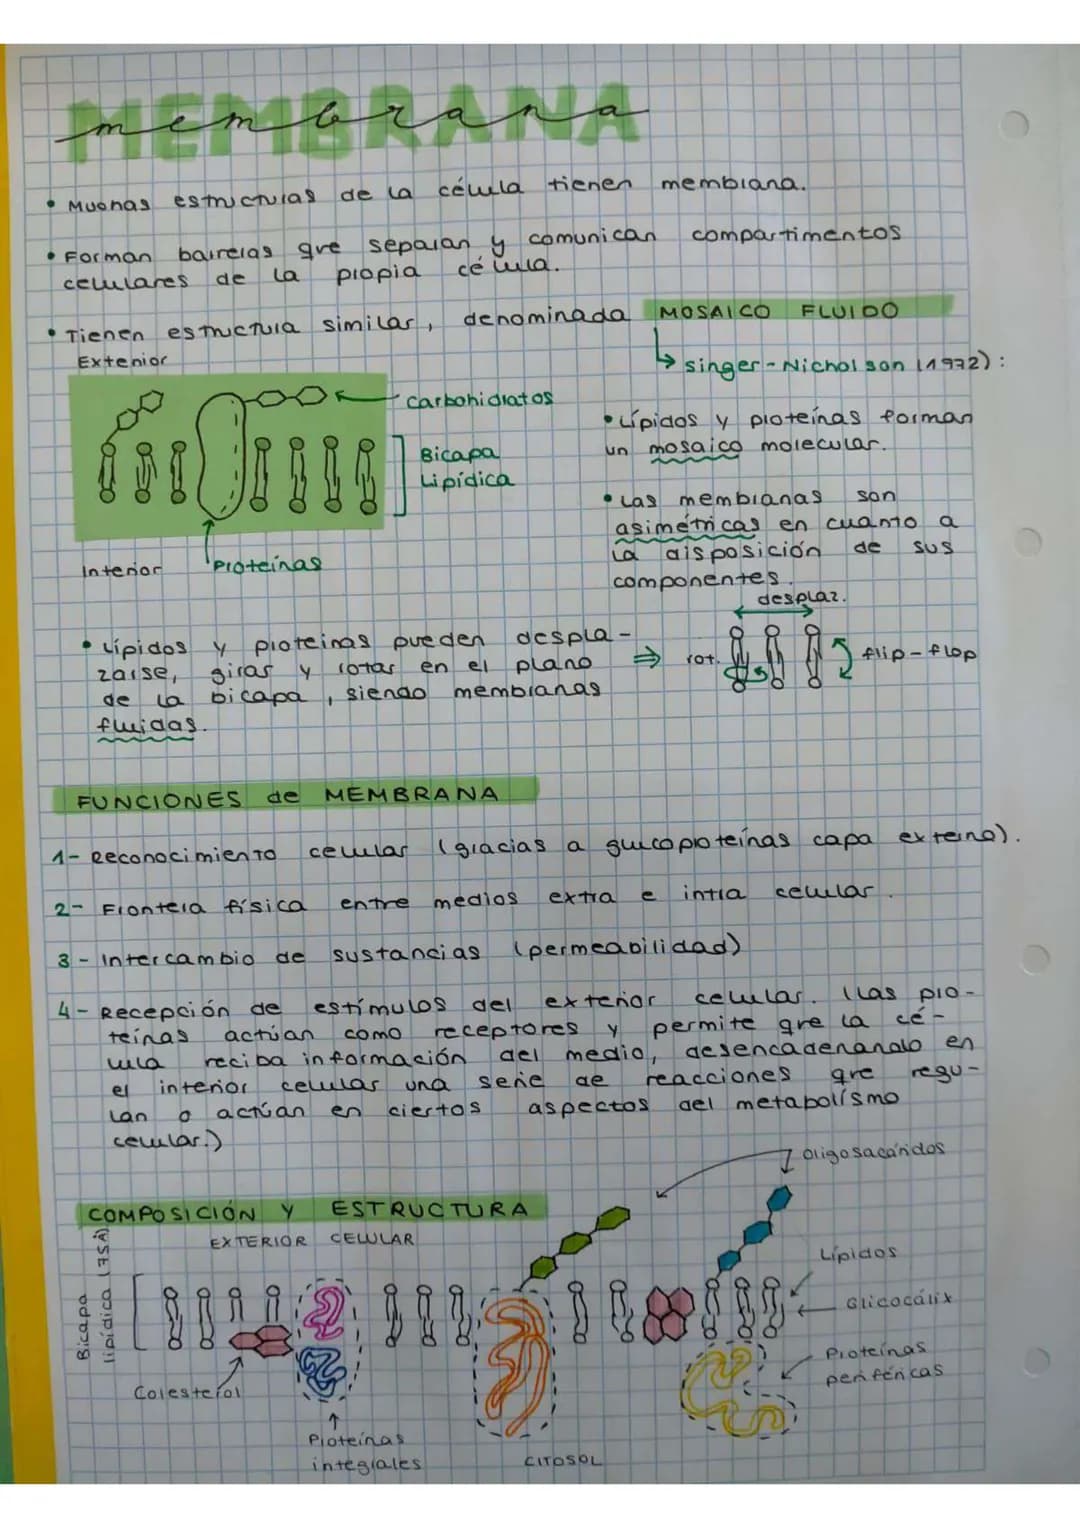 MEMBRANA
membrana
• Muchas estructuras de la célula tienen membrana.
• Forman barreras que separan y comunican compartimentos
celulares de la propia célula.
• Tienen estructura similar, denominada MOSAICO FLUIDO
Exterior
singer-Nicholson (1972):
carbohidratos
Bicapa
Lipídica
Interior
Proteínas
• Lípidos y proteínas forman
un mosaico molecular.
• Las membranas son
asimétricas en cuanto a
la disposición de sus
componentes.
• Lípidos y proteinas pueden despla-
zarse, girar y rotar en el plano
de la bicapa, siendo membranas
fluidas.
desplaz.
rot.
flip-flop
FUNCIONES de MEMBRANA
1- Reconocimiento celular (gracias a glucoproteínas capa externa).
2- Frontera física entre medios extra e intra celular.
3- Intercambio de sustancias (permeabilidad)
4- Recepción de estímulos del exterior celular. (Las pro-
teínas actúan como receptores y permite que la cé-
lula reciba información del medio, desencadenando en
el interior celular una serie de reacciones que regu-
lan o actúan en ciertos aspectos del metabolísmo
celular.)
Oligosacáridos
COMPOSICIÓN Y ESTRUCTURA
EXTERIOR CELULAR
Bicapa
lipídica (75Å)
Lípidos
Glicocálix
Proteínas
periféricas
Colesterol
Proteínas
integrales
CITOSOL